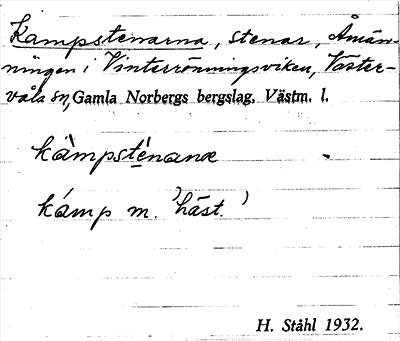 Kampstenarna, stenar, Åmän-
ningen i Vinterrönningsviken, Väster-
våla sn, Gamla Norbergs bergslag, Västm. l.
kàmpsténanæ
kámp m. 'häst.'
H. Ståhl 1932.